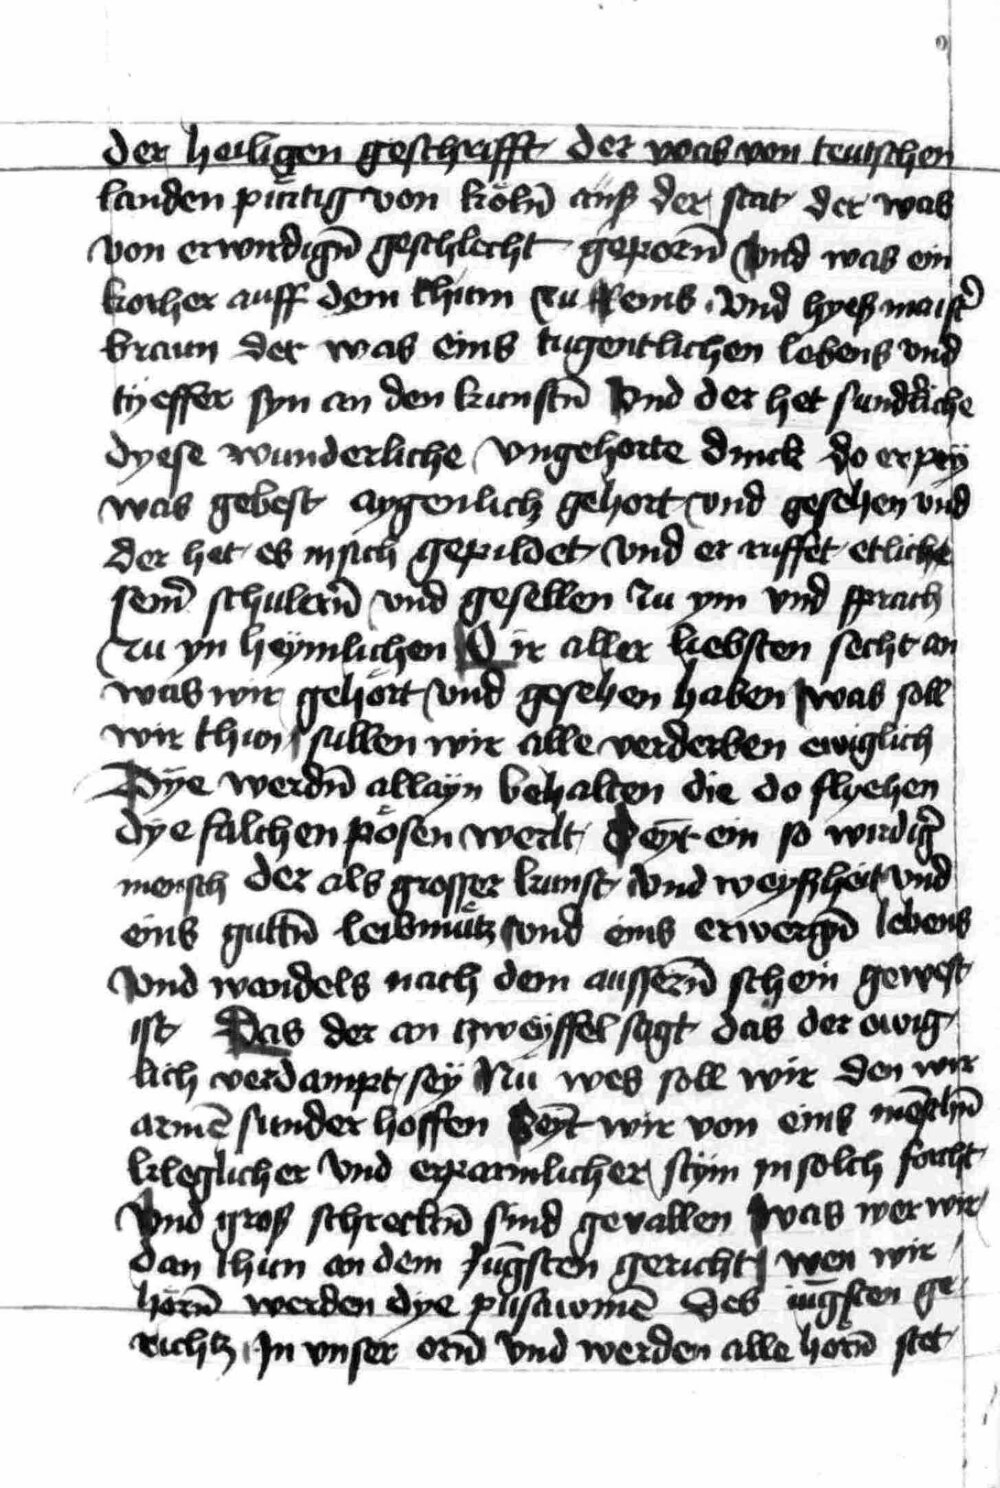 der heiligen geschrifft der was von teutschen
landen pürtig von Köln̄ auß der stat der was
von erwirdign̄ geschlecht geporn̄ Vnd was ein
korher auff dem thum zu Rems Vnd hyeß maist̄
braun der was eins tugentlichen lebens vnd
tyeffer syn an den kunstn̄ Vnd der het sundliche
dyese wunderliche vngehorte dinck do er pey
was gebest aygenlich gehort vnd gesehen vnd
der het es in sich gepildet vnd er ruffet etliche
sein̄ schulern̄ vnd gesellen zu ym vnd sprach
zu yn heymlichen O ir aller liebsten secht an
was wir gehört vnd gesehen haben was soll
wir thun sullen wir alle verderben ewiglich
Dye werdn̄ allayn behalten die do flyehen
dye falchen pösen werlt Seyt ein so wirdiḡ
mensch der als grosser kunst Vnd weyßheit vnd
eins gutn̄ lewmütz vnd eins erwergn̄ lebens
Vnd wandels nach dem aussern̄ schein gewest
ist Das der an zweyffel sagt das der ewig
lich verdampt sey Nu wes soll wir den wir
armē sunder hoffen Seyt wir von eins mēschn̄
kleglicher Vnd erparmlicher stym in solch forcht
Vnd groß schreckn̄ sind gevallen was wer wir
dan thun an dem Jūgsten gericht wen wir
hörn̄ werden dye pusawmē des iūgsten ge
richtz In vnser orn̄ vnd werden alle horn̄ stet